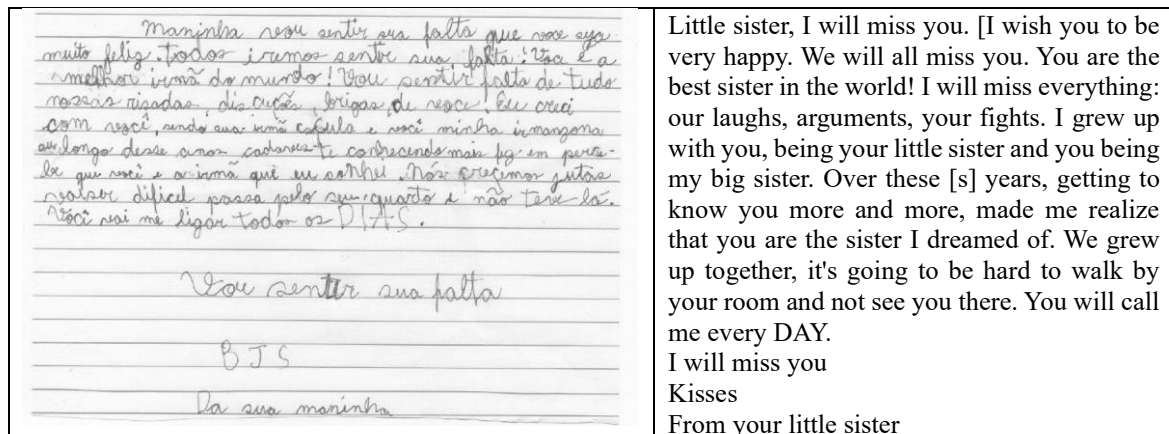 Maninha vou sentir sua falta que voce seja
muito feliz. todos iremos sentir sua falta! Voce é a
melhor irmã do mundo! Vou sentir falta de tudo
nossas risadas, discuções, brigas, de voce. Eu creci
com você, sendo sua irmã caçula e você minha irmanzona
au longo desse anos cada te conhecendo mais fez em perce-
be que você e a irmã que eu sonhei. Nós creçemos jutas
vaiser dificil passa pelo seu quarto e não teve lá.
Você vai me ligar todos os DIAS.
Vou sentir sua falta
BJS
Da sua maninha
Little sister, I will miss you. [I wish you to be
very happy. We will all miss you. You are the
best sister in the world! I will miss everything:
our laughs, arguments, your fights. I grew up
with you, being your little sister and you being
my big sister. Over these [s] years, getting to
know you more and more, made me realize
that you are the sister I dreamed of. We grew
up together, it's going to be hard to walk by
your room and not see you there. You will call
me every DAY.
I will miss you
Kisses
From your little sister